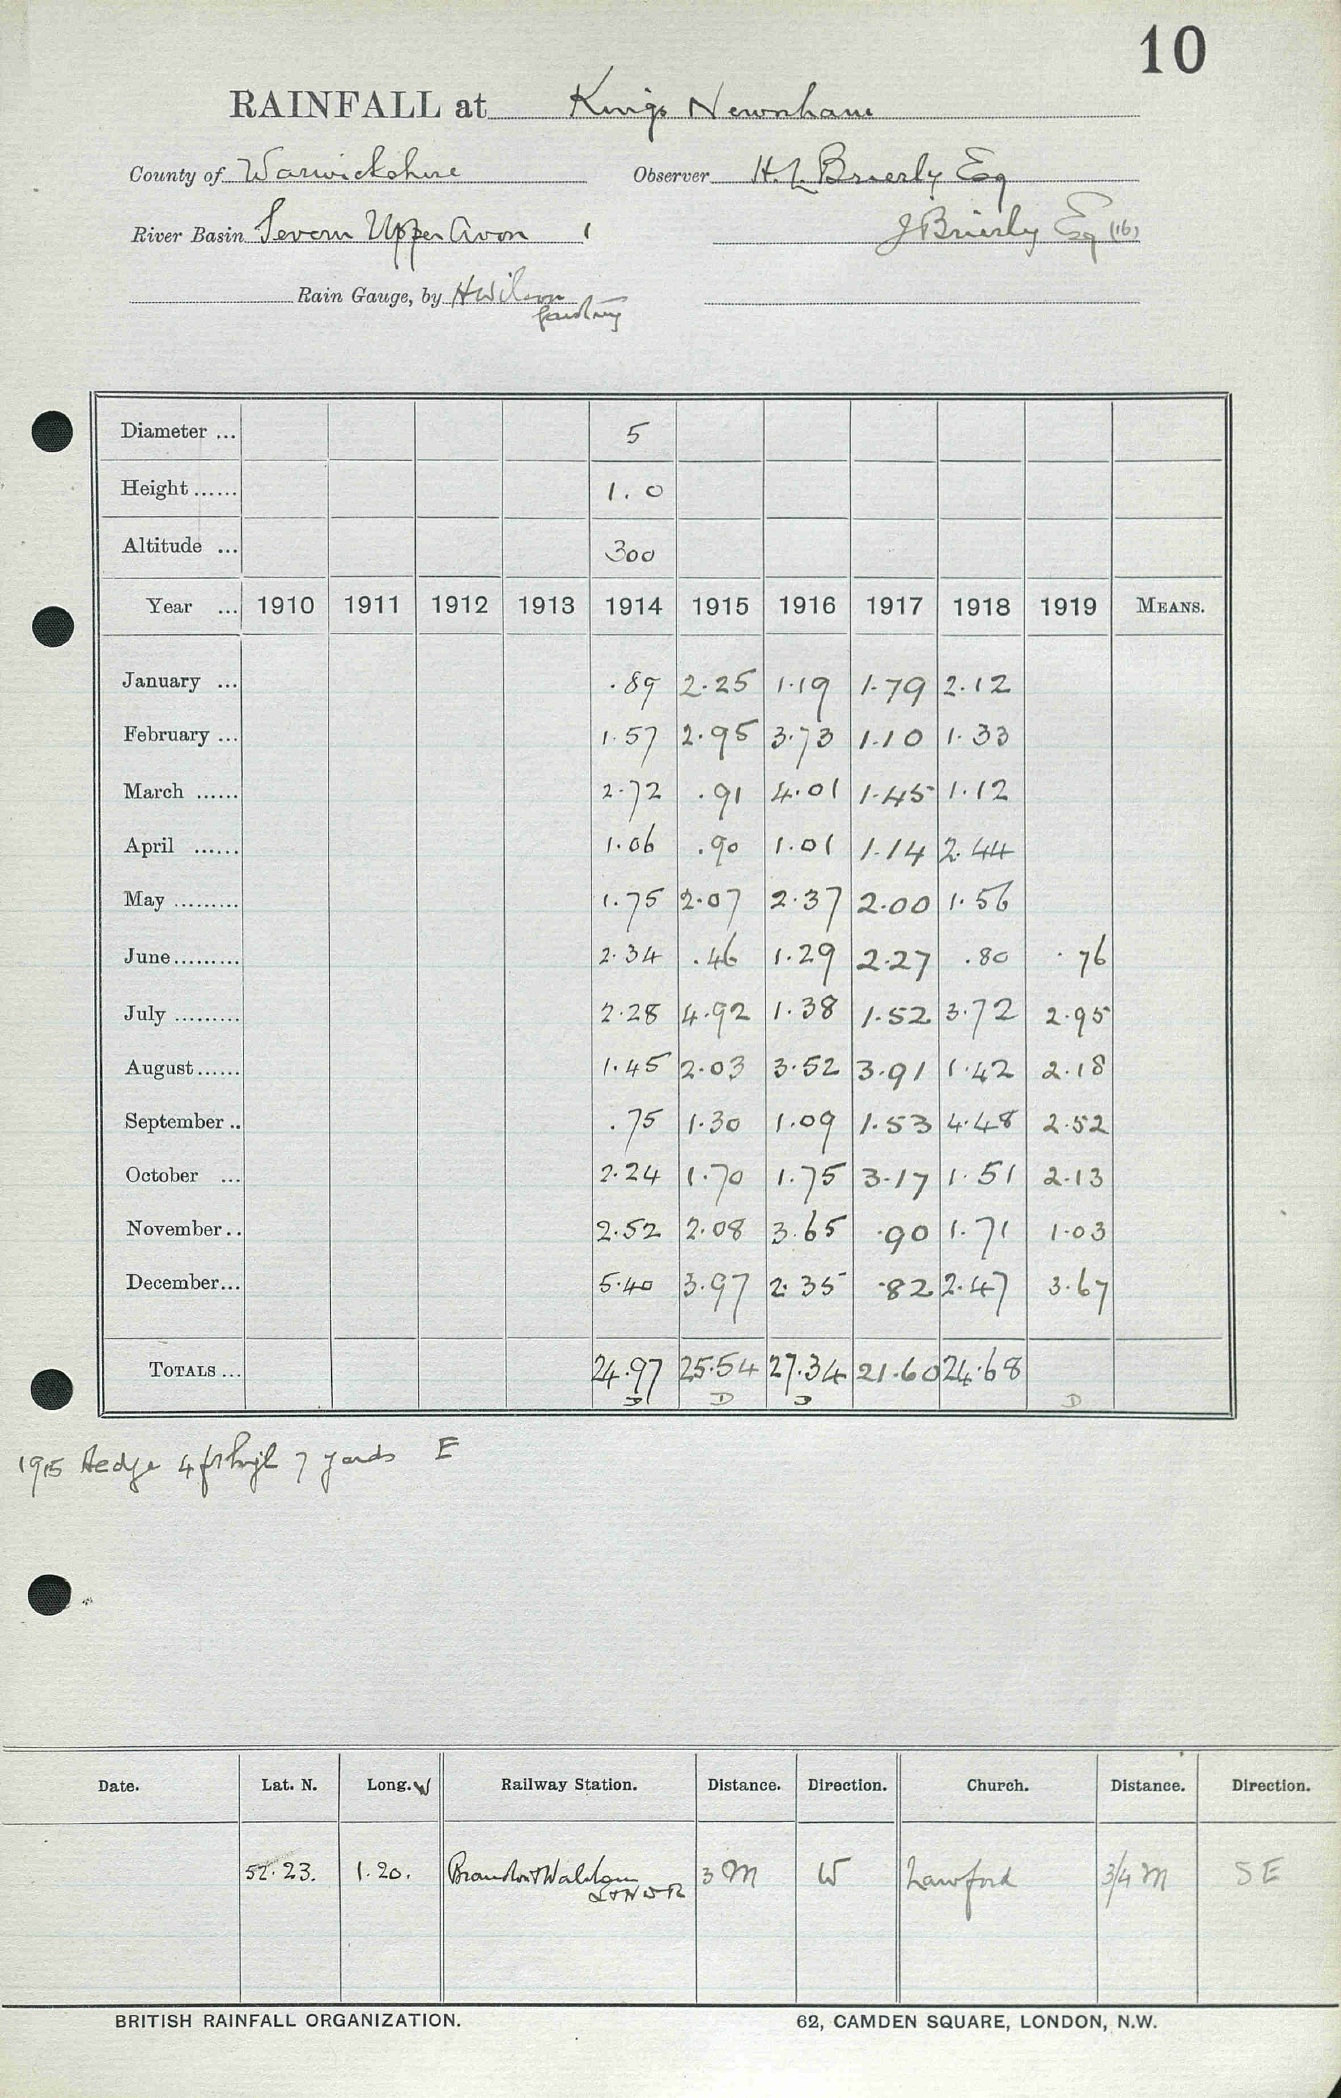 10
RAINFALL at Kings Newnham
County of Warwickshire Observer H. L. Brierly Esq
River Basin Severn Upper Avon 1 J Brierly Esq (16)
Rain Gauge, by H Wilson
Diameter ... 5
Height ...... 1.0
Altitude ... 300
Year ... 1910 1911 1912 1913 1914 1915 1916 1917 1918 1919 MEANS.
January ... .89 2.25 1.19 1.79 2.12
February ... 1.57 2.95 3.73 1.10 1.33
March ...... 2.72 .91 4.01 1.45 1.12
April ...... 1.06 .90 1.01 1.14 2.44
May ......... 1.75 2.07 2.37 2.00 1.56
June......... 2.34 .46 1.29 2.27 .80 .76
July ......... 2.28 4.92 1.38 1.52 3.72 2.95
August...... 1.45 2.03 3.52 3.91 1.42 2.18
September .. .75 1.30 1.09 1.53 4.48 2.52
October ... 2.24 1.70 1.75 3.17 1.51 2.13
November.. 2.52 2.08 3.65 .90 1.71 1.03
December... 5.40 3.97 2.35 .82 2.47 3.67
TOTALS ... 24.97 25.54 27.34 21.60 24.68
D D D D
1915 Hedge 4 ft high 7 yards E
Date. Lat. N. Long. W Railway Station. Distance. Direction. Church. Distance. Direction.
52.23. 1.20. Brandon & Wolston 3 M W Lawford 3/4 M SE
L & N W R
BRITISH RAINFALL ORGANIZATION. 62, CAMDEN SQUARE, LONDON, N.W.